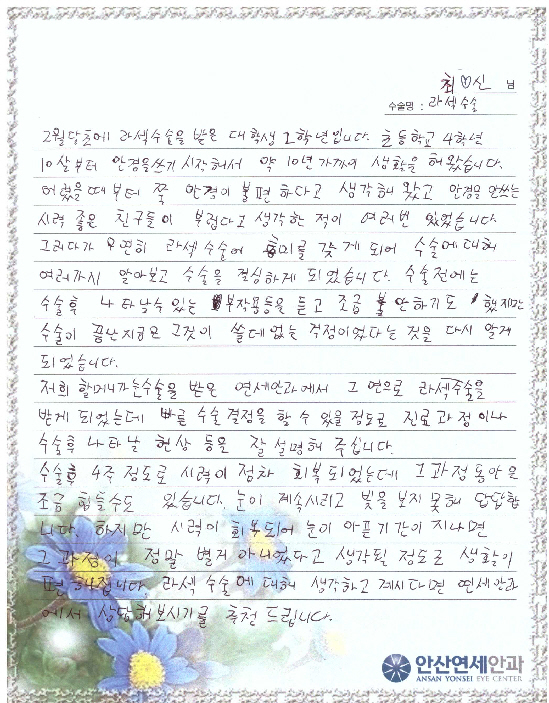 최♡신 님
수술명 : 라섹수술
2월달초에 라섹수술을 받은 대학생 1학년입니다. 초등학교 4학년
10살부터 안경을쓰기 시작해서 약 10년 가까이 생활을 해왔습니다.
어렸을때부터 쭉 안경이 불편하다고 생각해 왔고 안경을 안쓰는
시력 좋은 친구들이 부럽다고 생각한 적이 여러번 있었습니다.
그러다가 우연히 라섹수술에 흥미를 갖게 되어 수술에 대해
여러가지 알아보고 수술을 결심하게 되었습니다. 수술전에는
수술후 나타날수 있는 부작용등을 듣고 조금 불안하기도 했지만
수술이 끝난지금은 그것이 쓸데없는 걱정이었다는 것을 다시 알게
되었습니다.
저희 할머니가는수술을 받은 연세안과에서 그 연으로 라섹수술을
받게 되었는데 빠른 수술결정을 할 수 있을 정도로 진료과정이나
수술후 나타날 현상 등을 잘 설명해 주십니다.
수술후 4주 정도로 시력이 점차 회복되었는데 그 과정동안은
조금 힘들수도 있습니다. 눈이 계속시리고 빛을 보지 못해 답답합
니다. 하지만 시력이 회복되어 눈이 아픈기간이 지나면
그 과정이 정말 별거 아니었다고 생각될 정도로 생활이
편해집니다. 라섹 수술에 대해 생각하고 계시다면 연세안과
에서 상담해보시기를 추천 드립니다.
안산연세안과
ANSAN YONSEI EYE CENTER